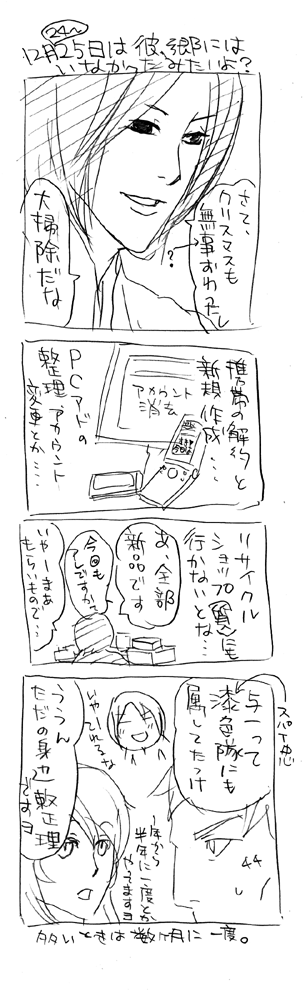 24〜
12月25日は彼、郷には
いなかったみたいよ?
さて、
クリスマスも
無事おわったし
?
大掃除だな
携帯の解約と
新規作成…
アカウント
消去
PCアドの
整理アカウント
変更とか…
リサイクル
ショップ質にも
行かないとな…
あ、全部
新品です
今回も
アレですか?
いやーまあ
もらいもので…
スパイ中心
与一って
漆色隊にも
属してたっけ
いやーてれるな
ううん
ただの身辺整理
ですヨ
1年から
半年に一度とか
やってますヨ
多いときは数ヶ月に一度。